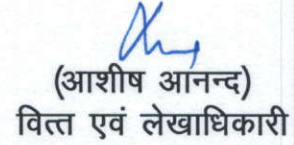 (आशीष आनन्द)
वित्त एवं लेखाधिकारी